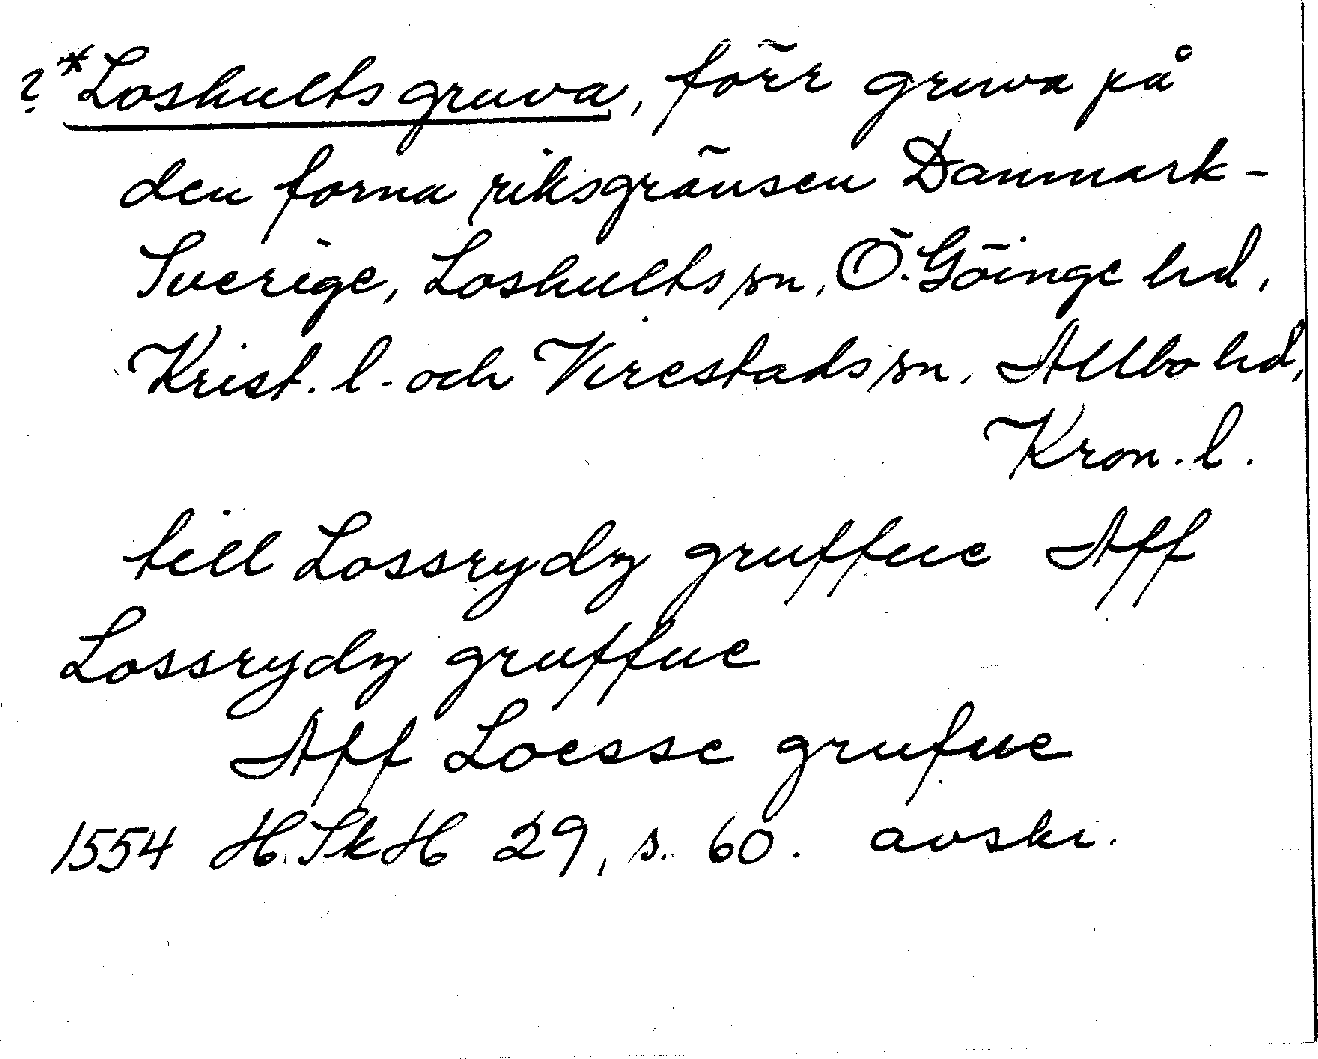 ?*Loshults gruva, förr gruva på
den forna riksgränsen Danmark-
Sverige, Loshults sn, Ö. Göinge hd,
Krist. l. och Virestads sn, Allbo hd,
Kron. l.
till Lossrydz gruffue Aff
Lossrydz gruffue
Aff Loesse grufue
1554 H.SkH 29, s. 60. avskr.